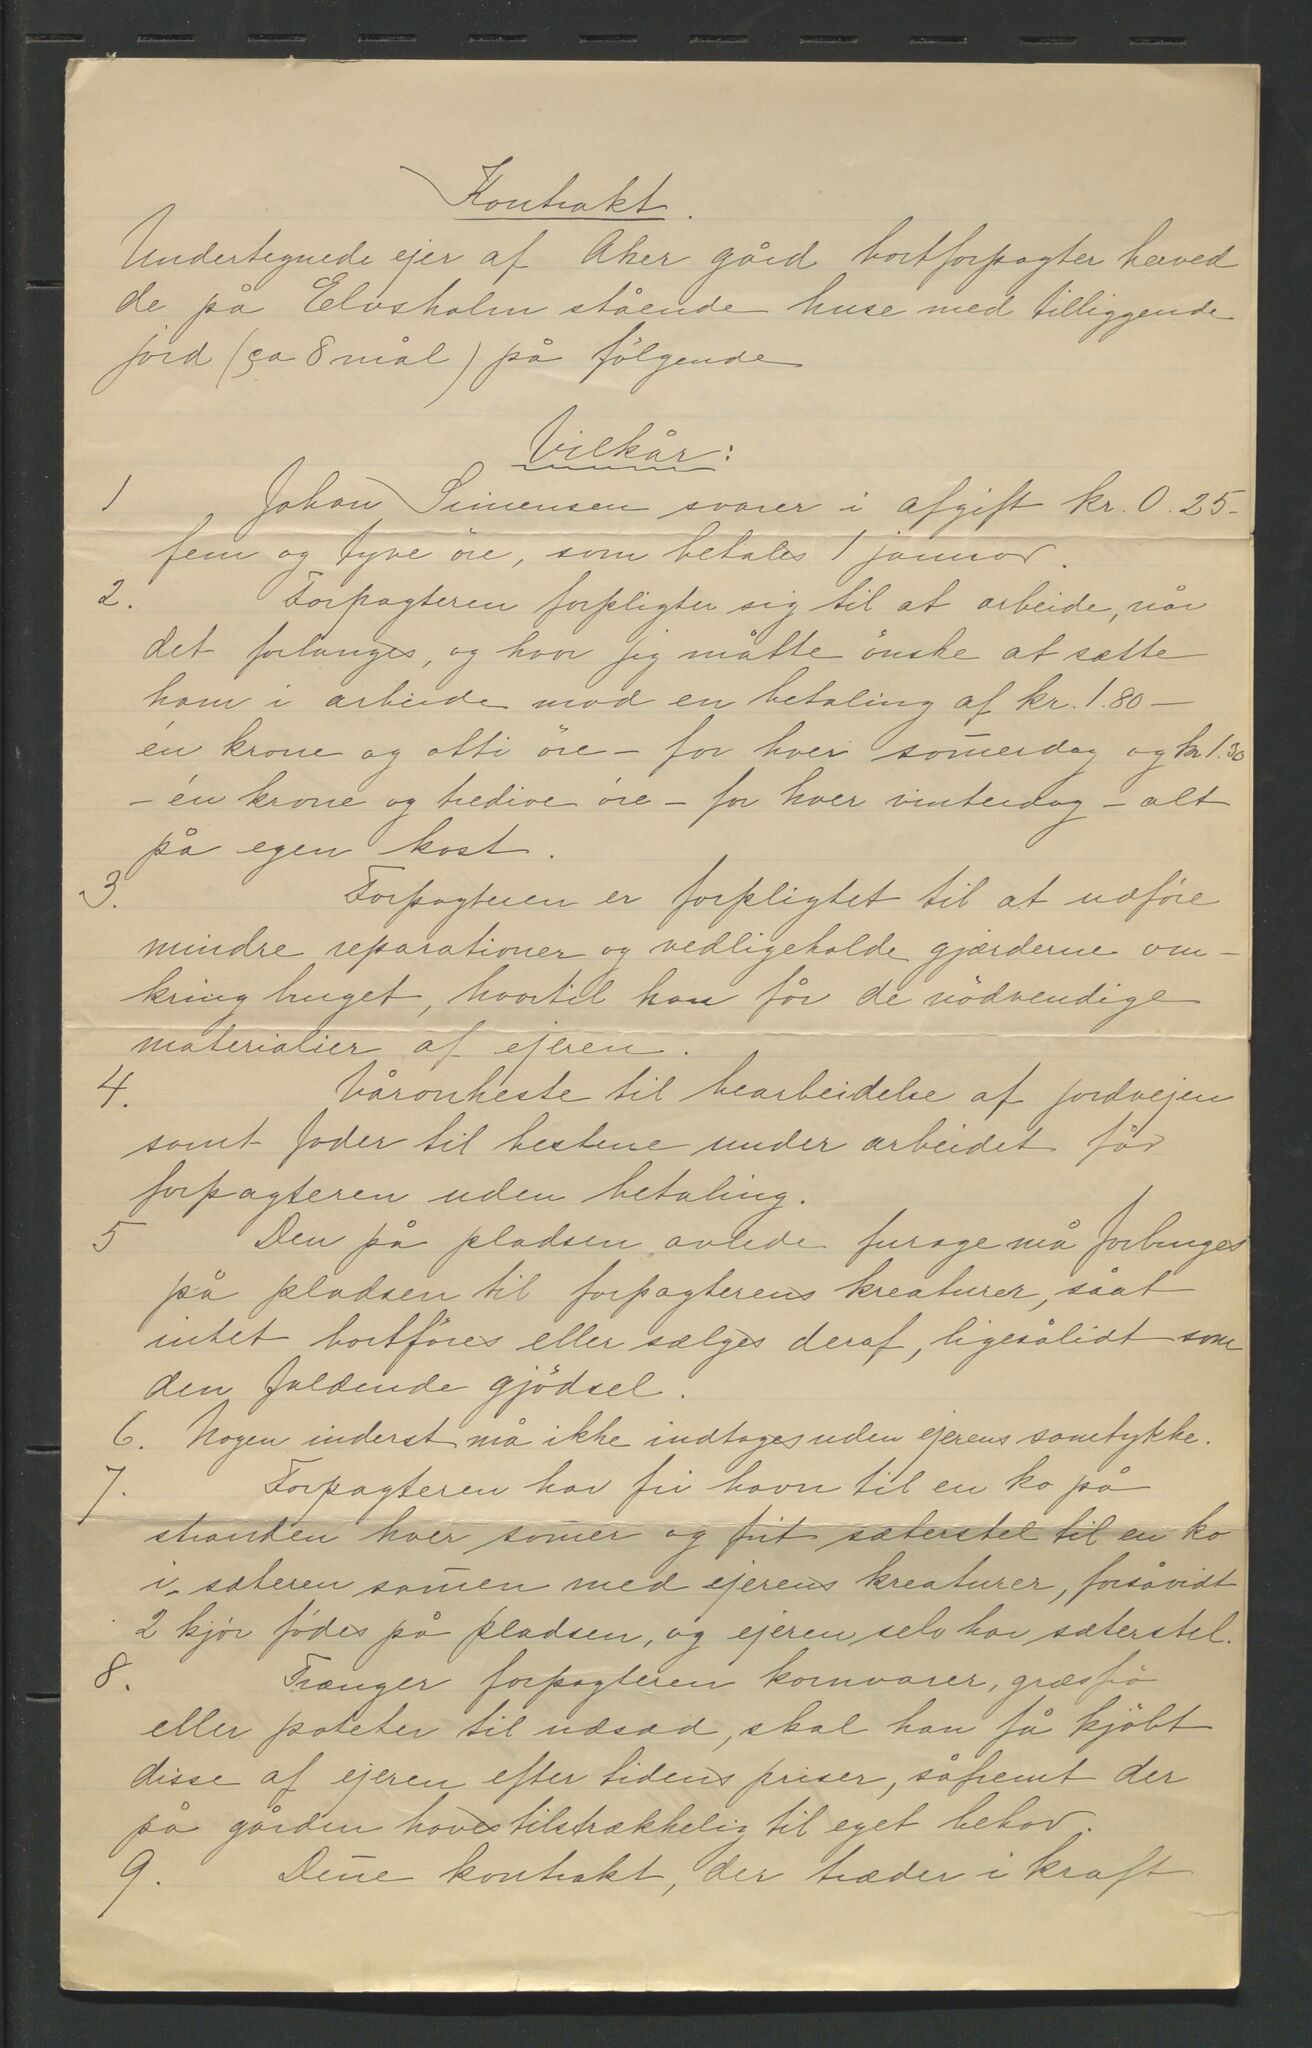 Kontrakt.
Undertegnede ejer af Aker gård bortforpagter herved
de på Elvsholm stående huse med tilliggende
jord (ca 8 mål) på følgende
Vilkår:
1 Johan Simensen svarer i afgift kr. 0.25 -
fem og tyve öre, som betales 1 januar.
2. Forpagteren forpligter sig til at arbeide, når
det forlanges, og hvor jeg måtte önske at sætte
ham i arbeide mod en betaling af kr. 1.80 —
én krone og otti öre – for hver som̄erdag og kr 1.30
– én krone og tredive öre – for hver vinterdag – alt
på egen kost.
3. Forpagteren er forpligtet til at udföre
mindre reparationer og vedligeholde gjærderne om-
kring bruget, hvortil han får de nödvendige
materialier af ejeren.
4. Våronheste til bearbeidelse af jordvejen
samt foder til hestene under arbeidet får
forpagteren uden betaling.
5 Den på pladsen avlede furage må forbruges
på pladsen til forpagterens kreaturer, såat
intet bortföres eller sælges deraf, ligesålidt som
den faldende gjödsel.
6. Nogen inderst må ikke indtages uden ejerens samtykke.
7. Forpagteren har fri havn til en ko på
stranden hver som̄er og frit sæterstel til en ko
i sæteren sam̄en med ejerens kreaturer, forsåvidt
2 kjör födes på pladsen, og ejeren selv har sæterstel.
8. Trænger forpagteren kornvarer, græsfrö
eller poteter til udsæd, skal han få kjöbt
disse af ejeren efter tidens priser, såfremt der
på gården haves tilstrækkelig til eget behov.
9. Den̄e kontrakt, der træder i kraft